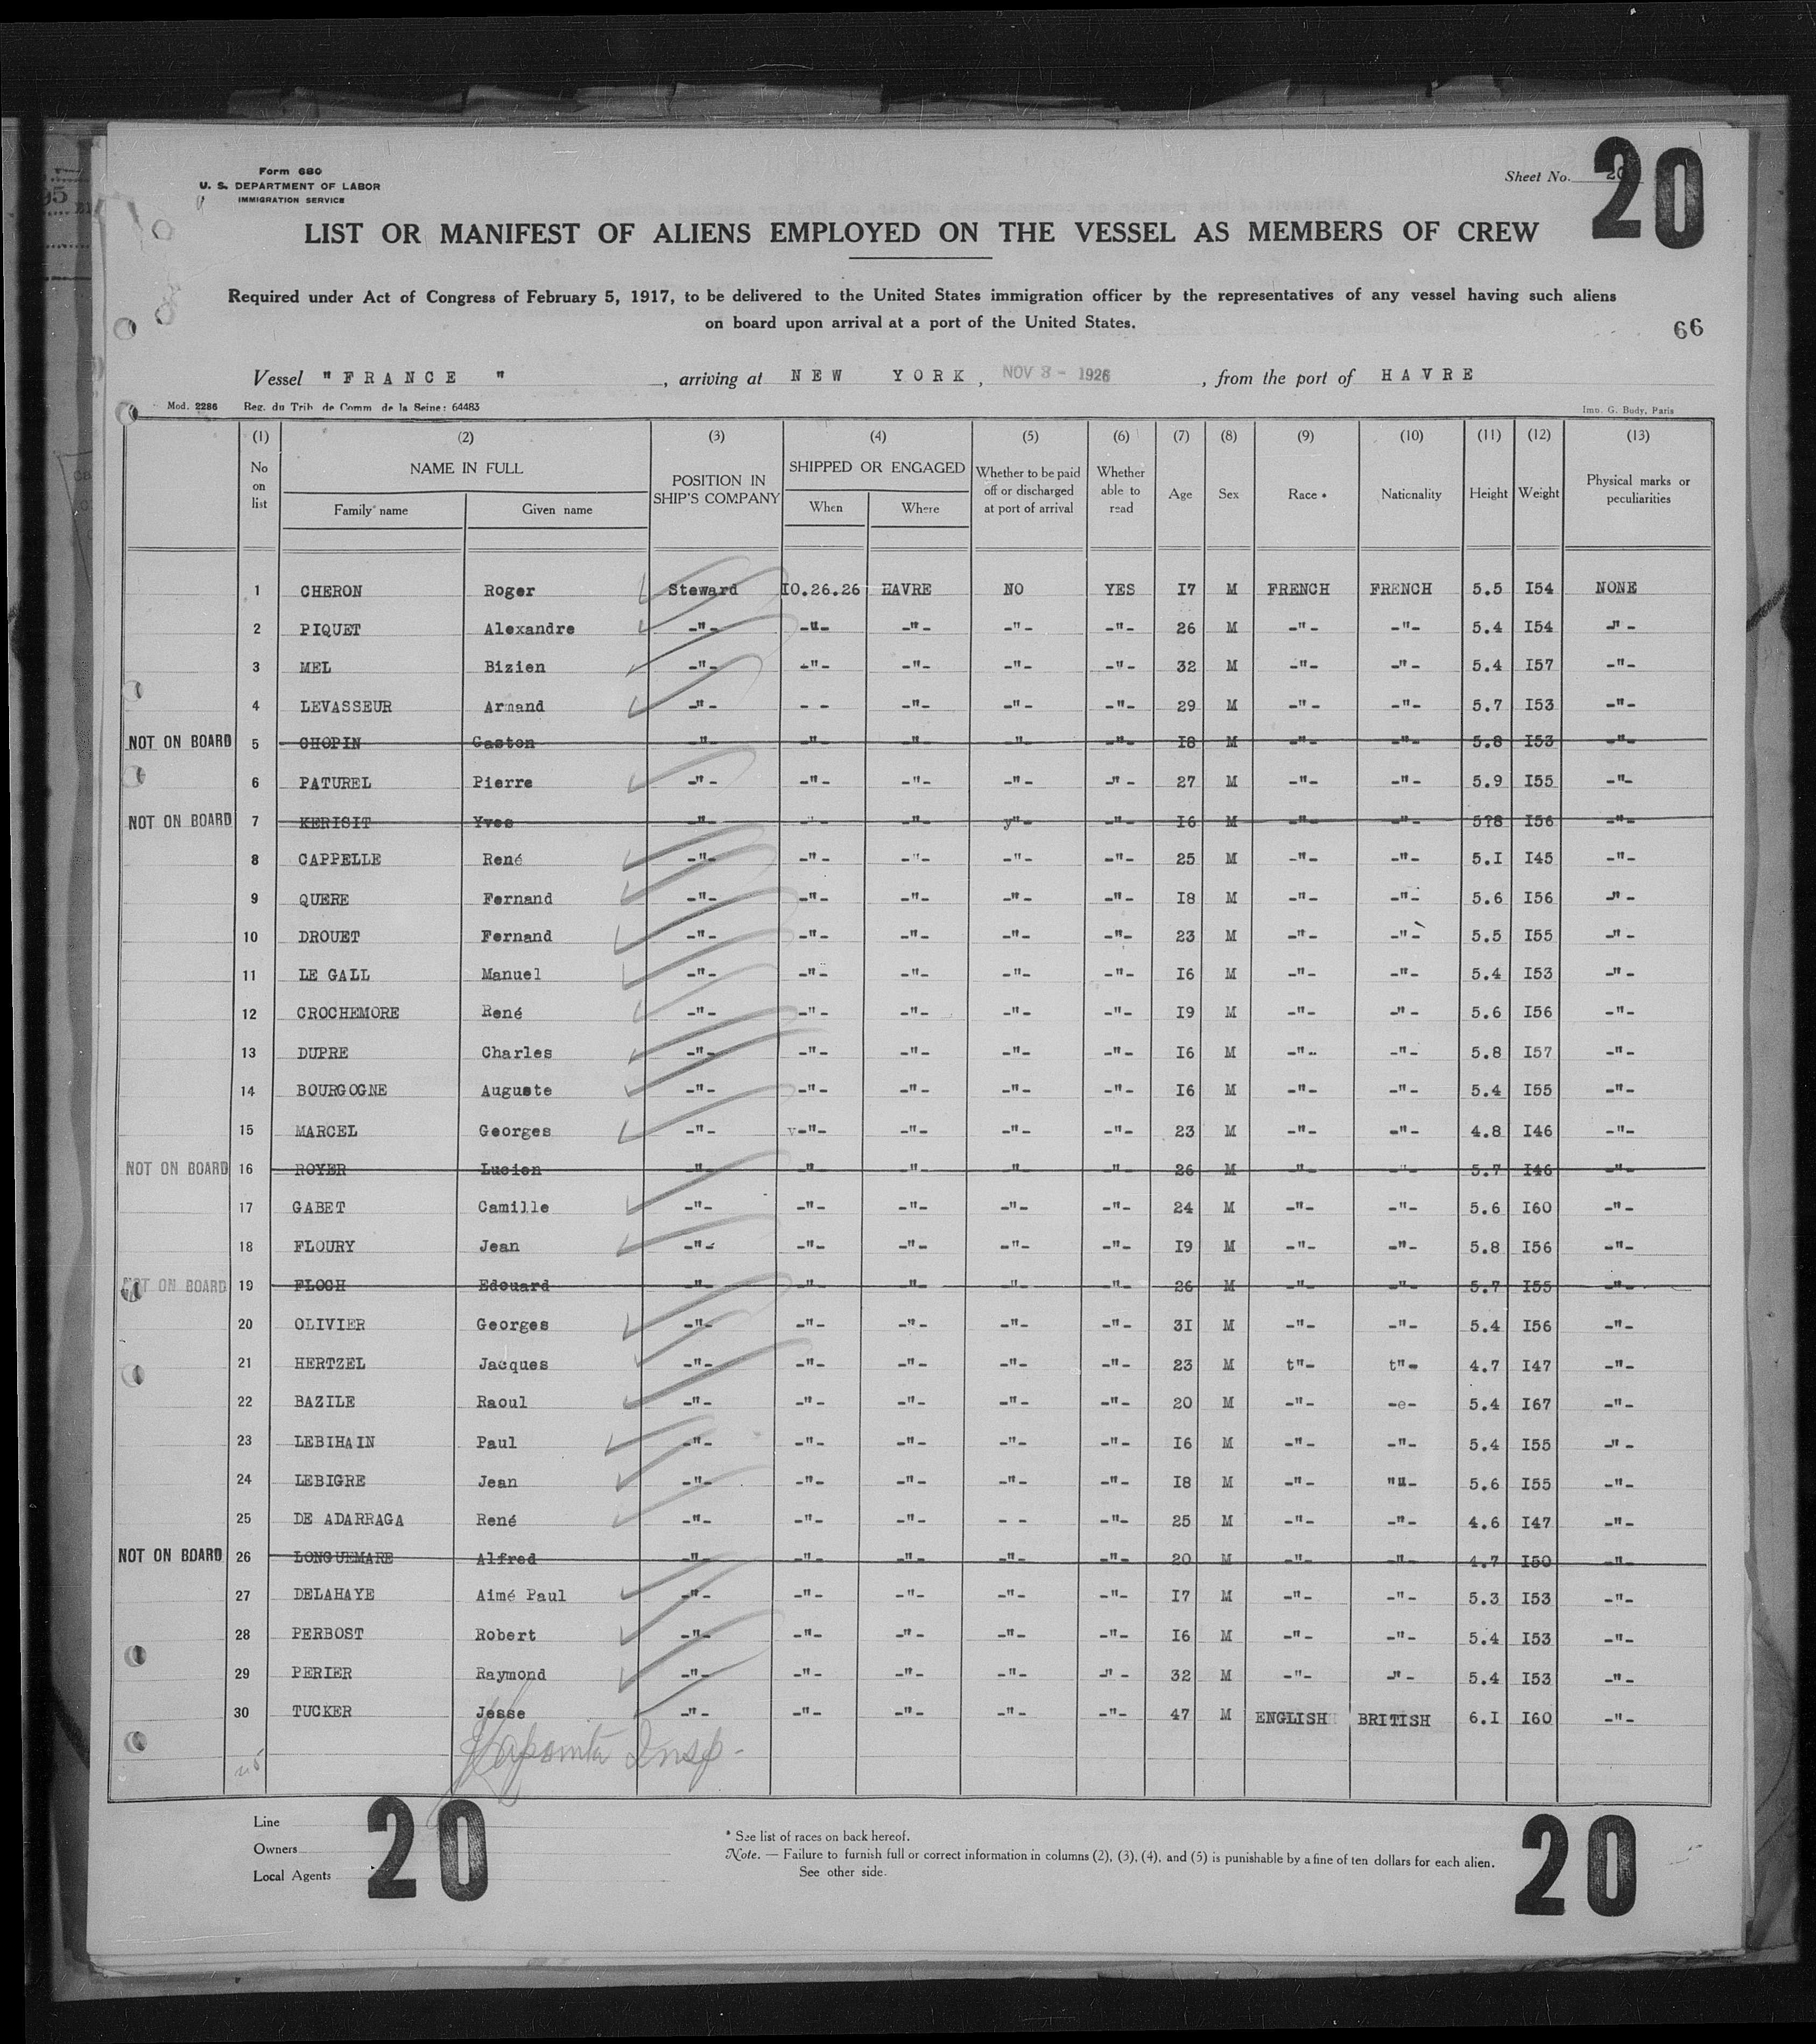 Form 680
U. S. DEPARTMENT OF LABOR
IMMIGRATION SERVICE
Sheet No. 20
20
LIST OR MANIFEST OF ALIENS EMPLOYED ON THE VESSEL AS MEMBERS OF CREW
Required under Act of Congress of February 5, 1917, to be delivered to the United States immigration officer by the representatives of any vessel having such aliens
on board upon arrival at a port of the United States.
66
Vessel "FRANCE ", arriving at NEW YORK, NOV 3 - 1926, from the port of HAVRE
Mod. 2286 Reg. du Trib. de Comm. de la Seine: 64483 Imp. G. Body, Paris
(1) (2) (3) (4) (5) (6) (7) (8) (9) (10) (11) (12) (13)
No on list NAME IN FULL Family name Given name POSITION IN SHIP'S COMPANY SHIPPED OR ENGAGED When Where Whether to be paid off or discharged at port of arrival Whether able to read Age Sex Race * Nationality Height Weight Physical marks or peculiarities
1 CHERON Roger Steward IO.26.26 HAVRE NO YES I7 M FRENCH FRENCH 5.5 I54 NONE
2 PIQUET Alexandre -"- -"- -"- -"- -"- 26 M -"- -"- 5.4 I54 -"-
3 MEL Bizien -"- -"- -"- -"- -"- 32 M -"- -"- 5.4 I57 -"-
4 LEVASSEUR Armand -"- - - -"- -"- -"- 29 M -"- -"- 5.7 I53 -"-
NOT ON BOARD 5 CHOPIN Gaston -"- -"- -"- -"- -"- I8 M -"- -"- 5.8 I53 -"-
6 PATUREL Pierre -"- -"- -"- -"- -"- 27 M -"- -"- 5.9 I55 -"-
NOT ON BOARD 7 KERISIT Yves -"- -"- -"- y"- -"- I6 M -"- -"- 5?8 I56 -"-
8 CAPPELLE René -"- -"- -"- -"- -"- 25 M -"- -"- 5.I I45 -"-
9 QUERE Fernand -"- -"- -"- -"- -"- I8 M -"- -"- 5.6 I56 -"-
10 DROUET Fernand -"- -"- -"- -"- -"- 23 M -"- -"- 5.5 I55 -"-
11 LE GALL Manuel -"- -"- -"- -"- -"- I6 M -"- -"- 5.4 I53 -"-
12 CROCHEMORE René -"- -"- -"- -"- -"- I9 M -"- -"- 5.6 I56 -"-
13 DUPRE Charles -"- -"- -"- -"- -"- I6 M -"- -"- 5.8 I57 -"-
14 BOURGOGNE Auguste -"- -"- -"- -"- -"- I6 M -"- -"- 5.4 I55 -"-
15 MARCEL Georges -"- v-"- -"- -"- -"- 23 M -"- -"- 4.8 I46 -"-
NOT ON BOARD 16 ROYER Lucien -"- -"- -"- -"- -"- 26 M -"- -"- 5.7 I46 -"-
17 GABET Camille -"- -"- -"- -"- -"- 24 M -"- -"- 5.6 I60 -"-
18 FLOURY Jean -"- -"- -"- -"- -"- I9 M -"- -"- 5.8 I56 -"-
NOT ON BOARD 19 FLOCH Edouard -"- -"- -"- -"- -"- 26 M -"- -"- 5.7 I55 -"-
20 OLIVIER Georges -"- -"- -"- -"- -"- 3I M -"- -"- 5.4 I56 -"-
21 HERTZEL Jacques -"- -"- -"- -"- -"- 23 M t"- t"- 4.7 I47 -"-
22 BAZILE Raoul -"- -"- -"- -"- -"- 20 M -"- -e- 5.4 I67 -"-
23 LEBIHAIN Paul -"- -"- -"- -"- -"- I6 M -"- -"- 5.4 I55 -"-
24 LEBIGRE Jean -"- -"- -"- -"- -"- I8 M -"- ""- 5.6 I55 -"-
25 DE ADARRAGA René -"- -"- -"- - - -"- 25 M -"- -"- 4.6 I47 -"-
NOT ON BOARD 26 LONGUEMARE Alfred -"- -"- -"- -"- -"- 20 M -"- -"- 4.7 I50 -"-
27 DELAHAYE Aimé Paul -"- -"- -"- -"- -"- I7 M -"- -"- 5.3 I53 -"-
28 PERBOST Robert -"- -"- -"- -"- -"- I6 M -"- -"- 5.4 I53 -"-
29 PERIER Raymond -"- -"- -"- -"- -"- 32 M -"- -"- 5.4 I53 -"-
30 TUCKER Jesse -"- -"- -"- -"- -"- 47 M ENGLISH BRITISH 6.I I60 -"-
Insp.
Line
Owners
Local Agents
20
* See list of races on back hereof.
Note. — Failure to furnish full or correct information in columns (2), (3), (4), and (5) is punishable by a fine of ten dollars for each alien.
See other side.
20